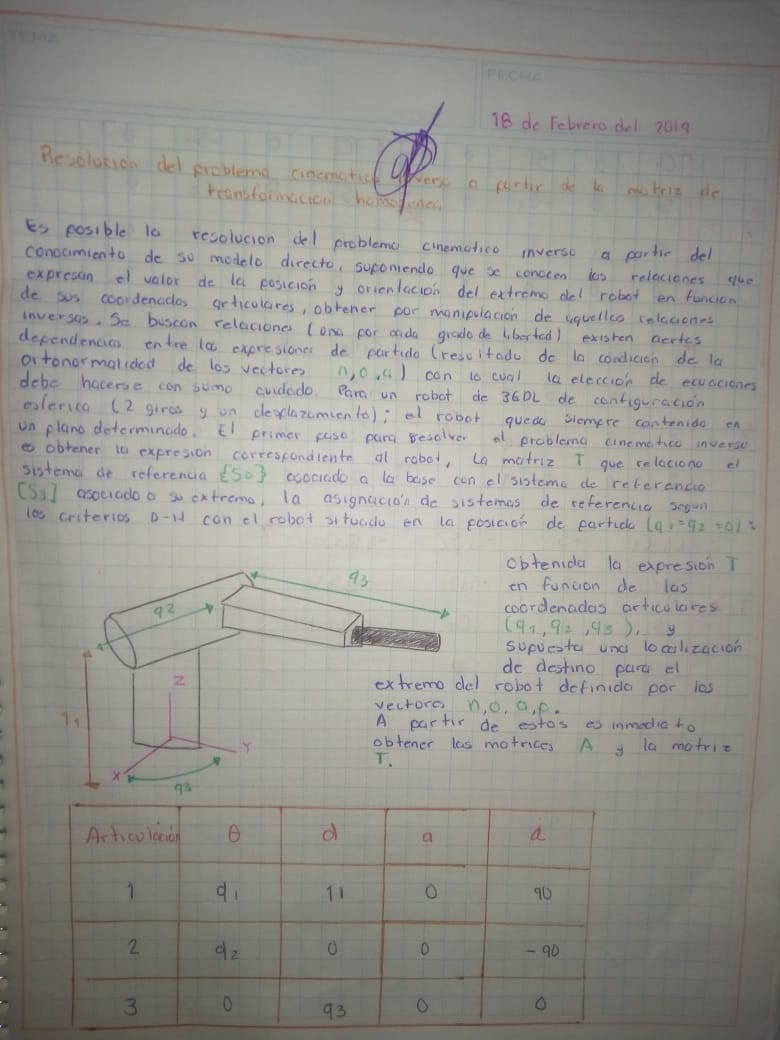 TEMA
FECHA
18 de Febrero del 2019
Resolución del problema cinematico inverso a partir de la matriz de
transformacion homogenea
Es posible la resolucion del problema cinematico inverso a partir del
conocimiento de su modelo directo, suponiendo que se conocen las relaciones que
expresan el valor de la posición y orientación del extremo del robot en funcion
de sus coordenadas articulares, obtener por manipulación de aquellas relaciones
inversas. Se buscan relaciones (una por cada grado de libertad) existen ciertas
dependencias entre las expresiones de partida (resultado de la condición de la
ortonormalidad de los vectores n,o,a) con lo cual la elección de ecuaciones
debe hacerse con sumo cuidado. Para un robot de 3GDL de configuración
esferica (2 giros y un desplazamiento); el robot queda siempre contenido en
un plano determinado. El primer paso para resolver el problema cinematico inverso
es obtener la expresión correspondiente al robot, La matriz T que relaciona el
sistema de referencia {So} asociado a la base con el sistema de referencia
[S3] asociado a su extremo, la asignación de sistemas de referencia segun
los criterios D-H con el robot situado en la posición de partida (q1=q2=0):
Obtenida la expresión T
en funcion de las
coordenadas articulares
(q1,q2,q3), y
supuesta una localización
de destino para el
extremo del robot definido por los
vectores n,o,a,p.
A partir de estos es inmediato
obtener las matrices A y la matriz
T.
q3
q2
l1
Z
Y
X
q3
Articulación θ d a α
1 q1 l1 0 90
2 q2 0 0 -90
3 0 q3 0 0